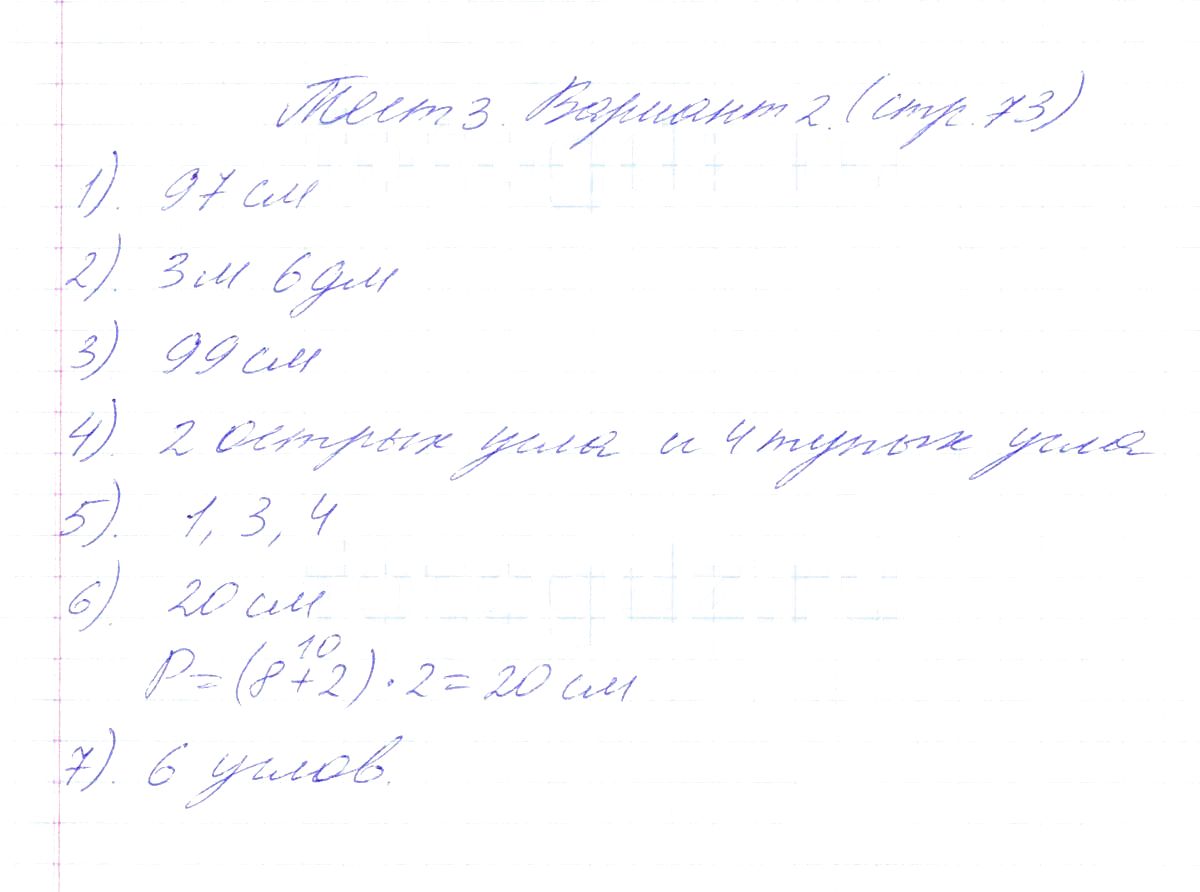 Тест 3. Вариант 2. (стр. 73)
1). 97 см
2). 3 м 6 дм
3) 99 см
4). 2 острых угла и 4 тупых угла
5). 1, 3, 4
6). 20 см
10
P = (8+2) · 2 = 20 см
7). 6 углов.